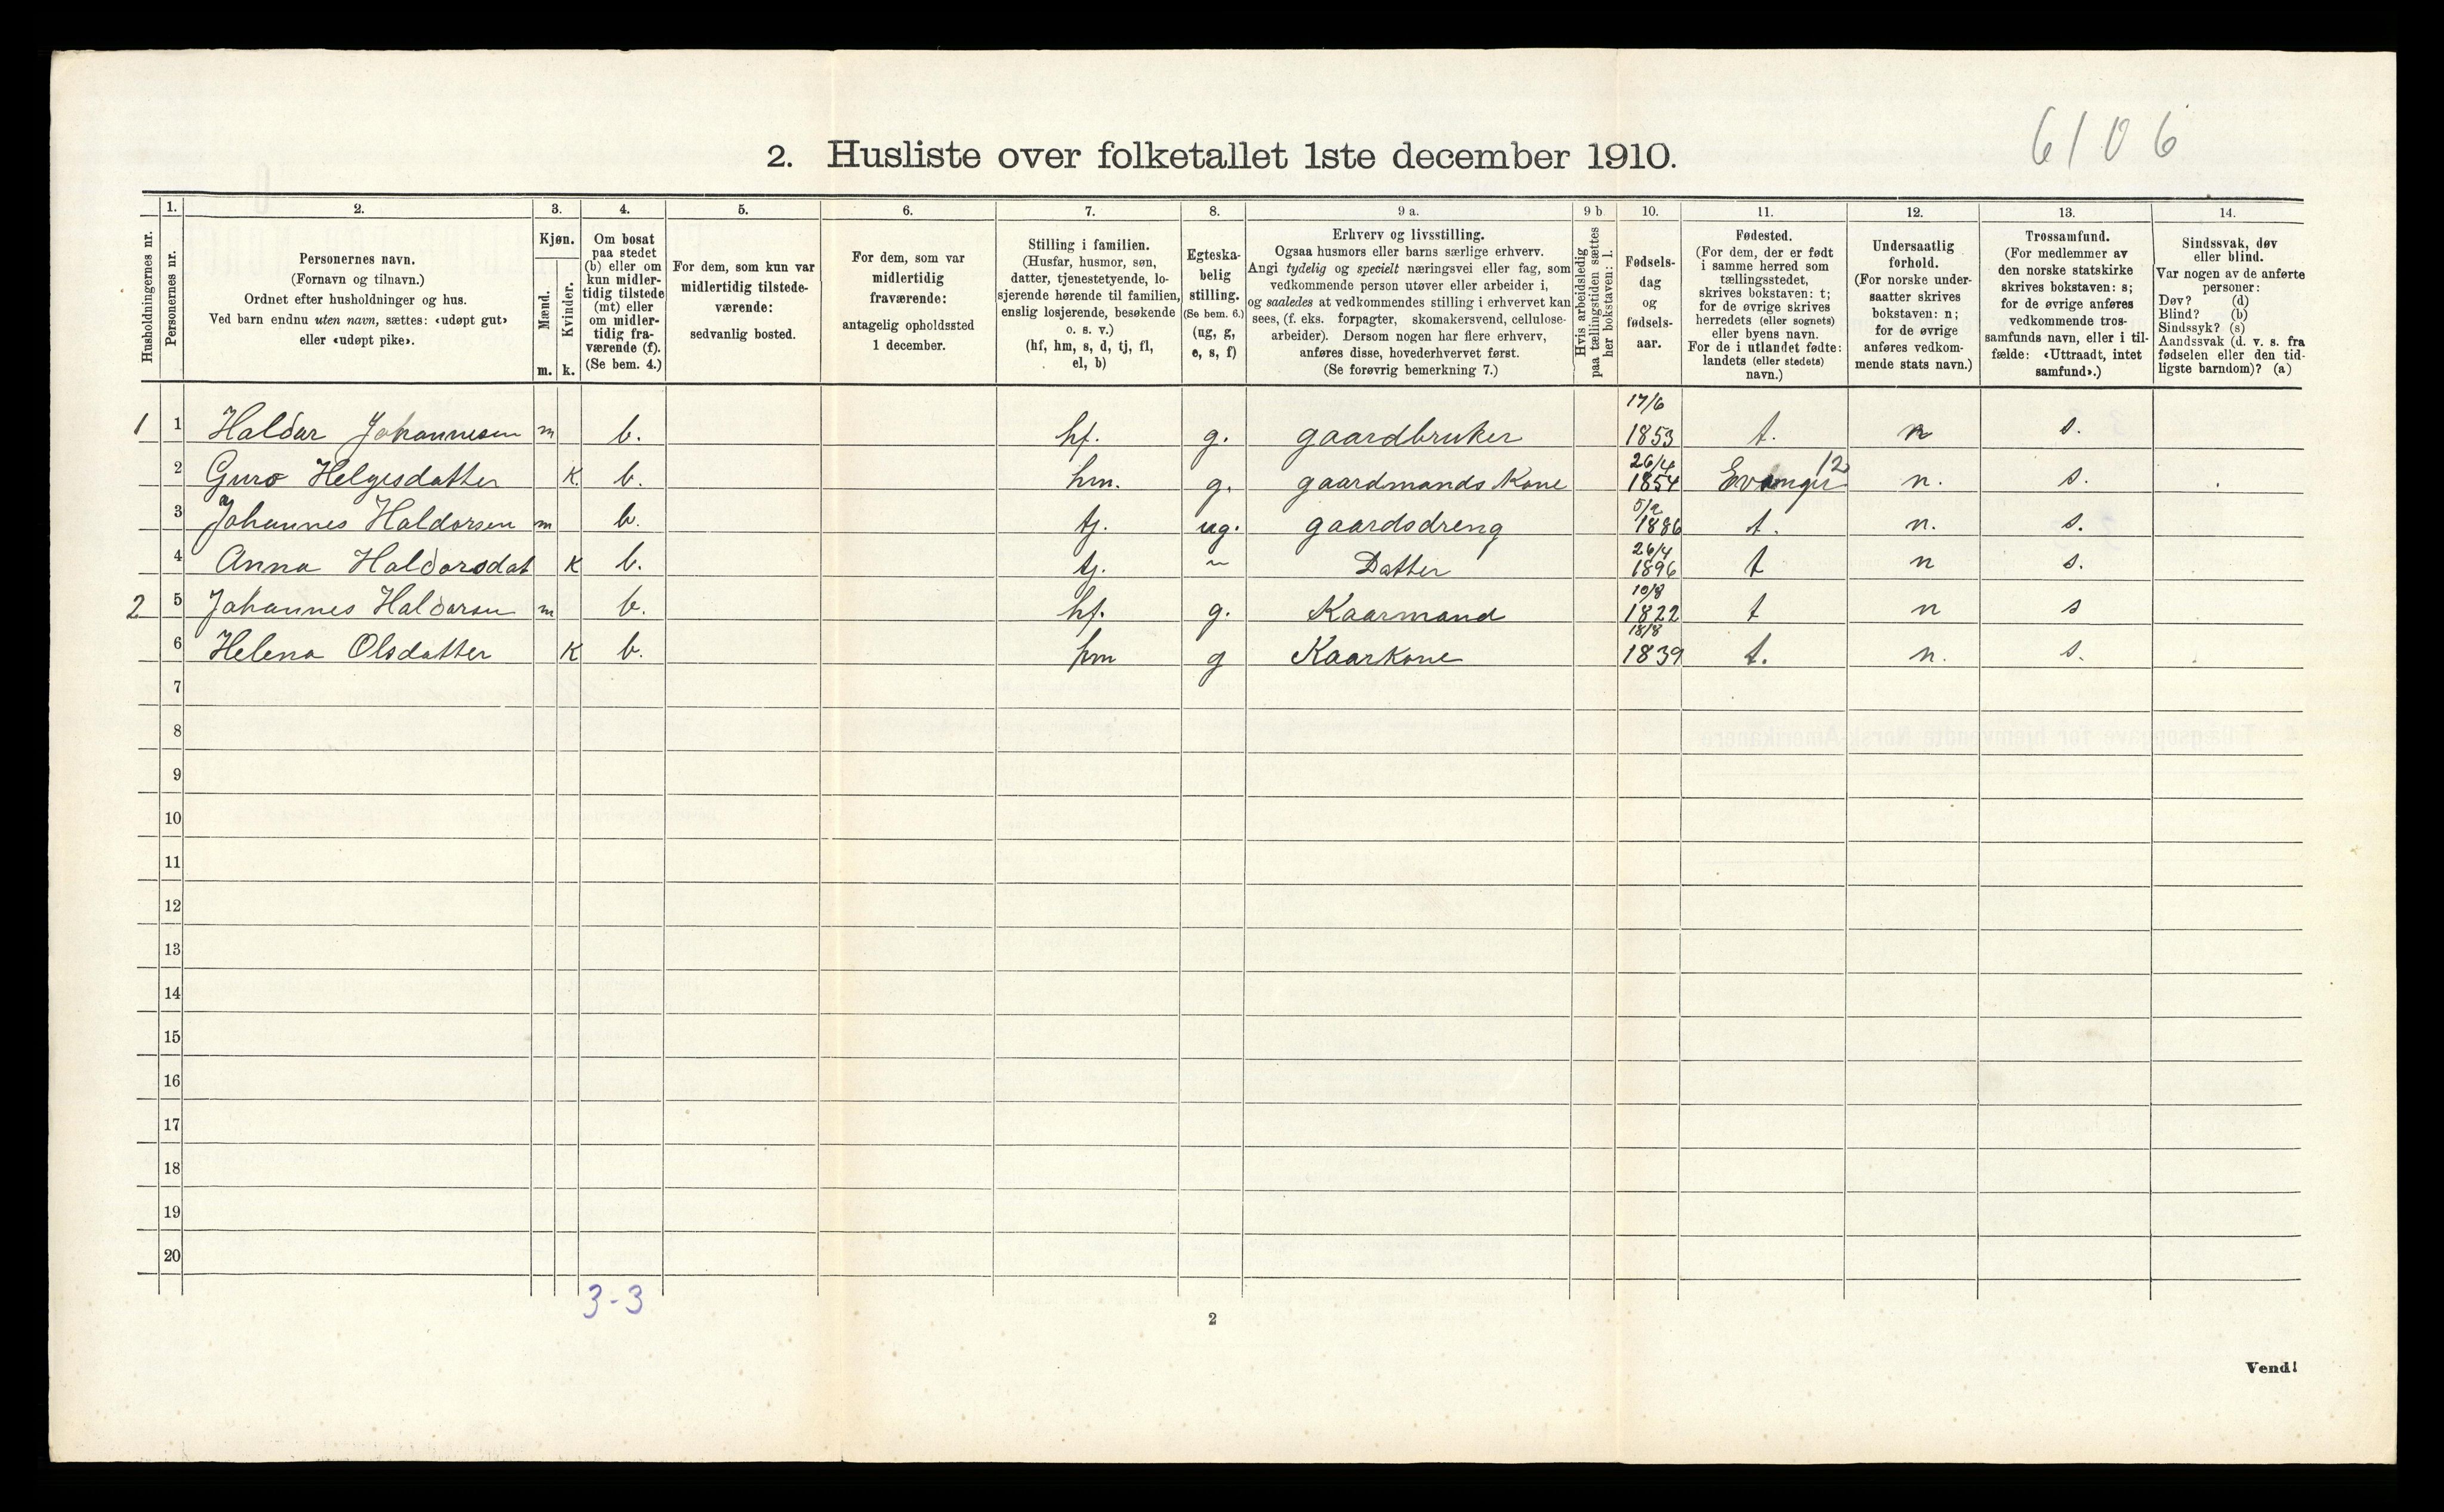 6106
2. Husliste over folketallet 1ste december 1910.
Husholdningernes nr.
1. Personernes nr.
2. Personernes navn.
(Fornavn og tilnavn.)
Ordnet efter husholdninger og hus.
Ved barn endnu uten navn, sættes: «udøpt gut»
eller «udøpt pike».
3. Kjøn.
Mænd. m.
Kvinder. k.
4. Om bosat
paa stedet
(b) eller om
kun midler-
tidig tilstede
(mt) eller
om midler-
tidig fra-
værende (f).
(Se bem. 4.)
5. For dem, som kun var
midlertidig tilstede-
værende:
sedvanlig bosted.
6. For dem, som var
midlertidig
fraværende:
antagelig opholdssted
1 december.
7. Stilling i familien.
(Husfar, husmor, søn,
datter, tjenestetyende, lo-
sjerende hørende til familien,
enslig losjerende, besøkende
o. s. v.)
(hf, hm, s, d, tj, fl,
el, b)
8. Egteska-
belig
stilling.
(Se bem. 6.)
(ug, g,
e, s, f)
9 a. Erhverv og livsstilling.
Ogsaa husmors eller barns særlige erhverv.
Angi tydelig og specielt næringsvei eller fag, som
vedkommende person utøver eller arbeider i,
og saaledes at vedkommendes stilling i erhvervet kan
sees, (f. eks. forpagter, skomakersvend, cellulose-
arbeider). Dersom nogen har flere erhverv,
anføres disse, hovederhvervet først.
(Se forøvrig bemerkning 7.)
9 b Hvis arbeidsledig
paa tællingstiden sættes
her bokstaven: l.
10. Fødsels-
dag
og
fødsels-
aar.
11. Fødested.
(For dem, der er født
i samme herred som
tællingsstedet,
skrives bokstaven: t;
for de øvrige skrives
herredets (eller sognets)
eller byens navn.
For de i utlandet fødte:
landets (eller stedets)
navn.)
12. Undersaatlig
forhold.
(For norske under-
saatter skrives
bokstaven: n;
for de øvrige
anføres vedkom-
mende stats navn.)
13. Trossamfund.
(For medlemmer av
den norske statskirke
skrives bokstaven: s;
for de øvrige anføres
vedkommende tros-
samfunds navn, eller i til-
fælde: «Uttraadt, intet
samfund».)
14. Sindssvak, døv
eller blind.
Var nogen av de anførte
personer:
Døv? (d)
Blind? (b)
Sindssyk? (s)
Aandssvak (d. v. s. fra
fødselen eller den tid-
ligste barndom)? (a)
1 1 Haldar Johannesen m b. hf. g. gaardbruker 17/6 1853 t. n s.
2 Guro Helgesdatter K. b. hm. g. gaardmands Kone 26/4 1854 Evanger 12 n. s.
3 Johannes Haldorsen m b. tj. ug. gaardsdreng 5/2 1886 t. n. s.
4 Anna Haldorsdat K b. tj. ~ Datter 26/4 1896 t n s.
2 5 Johannes Haldorsn m b. hf. g. Kaarmand 10/8 1822 t n s
6 Helena Olsdatter K b. hm g Kaarkone 18/8 1839 t. n. s.
7
8
9
10
11
12
13
14
15
16
17
18
19
20
3-3
2
Vend!